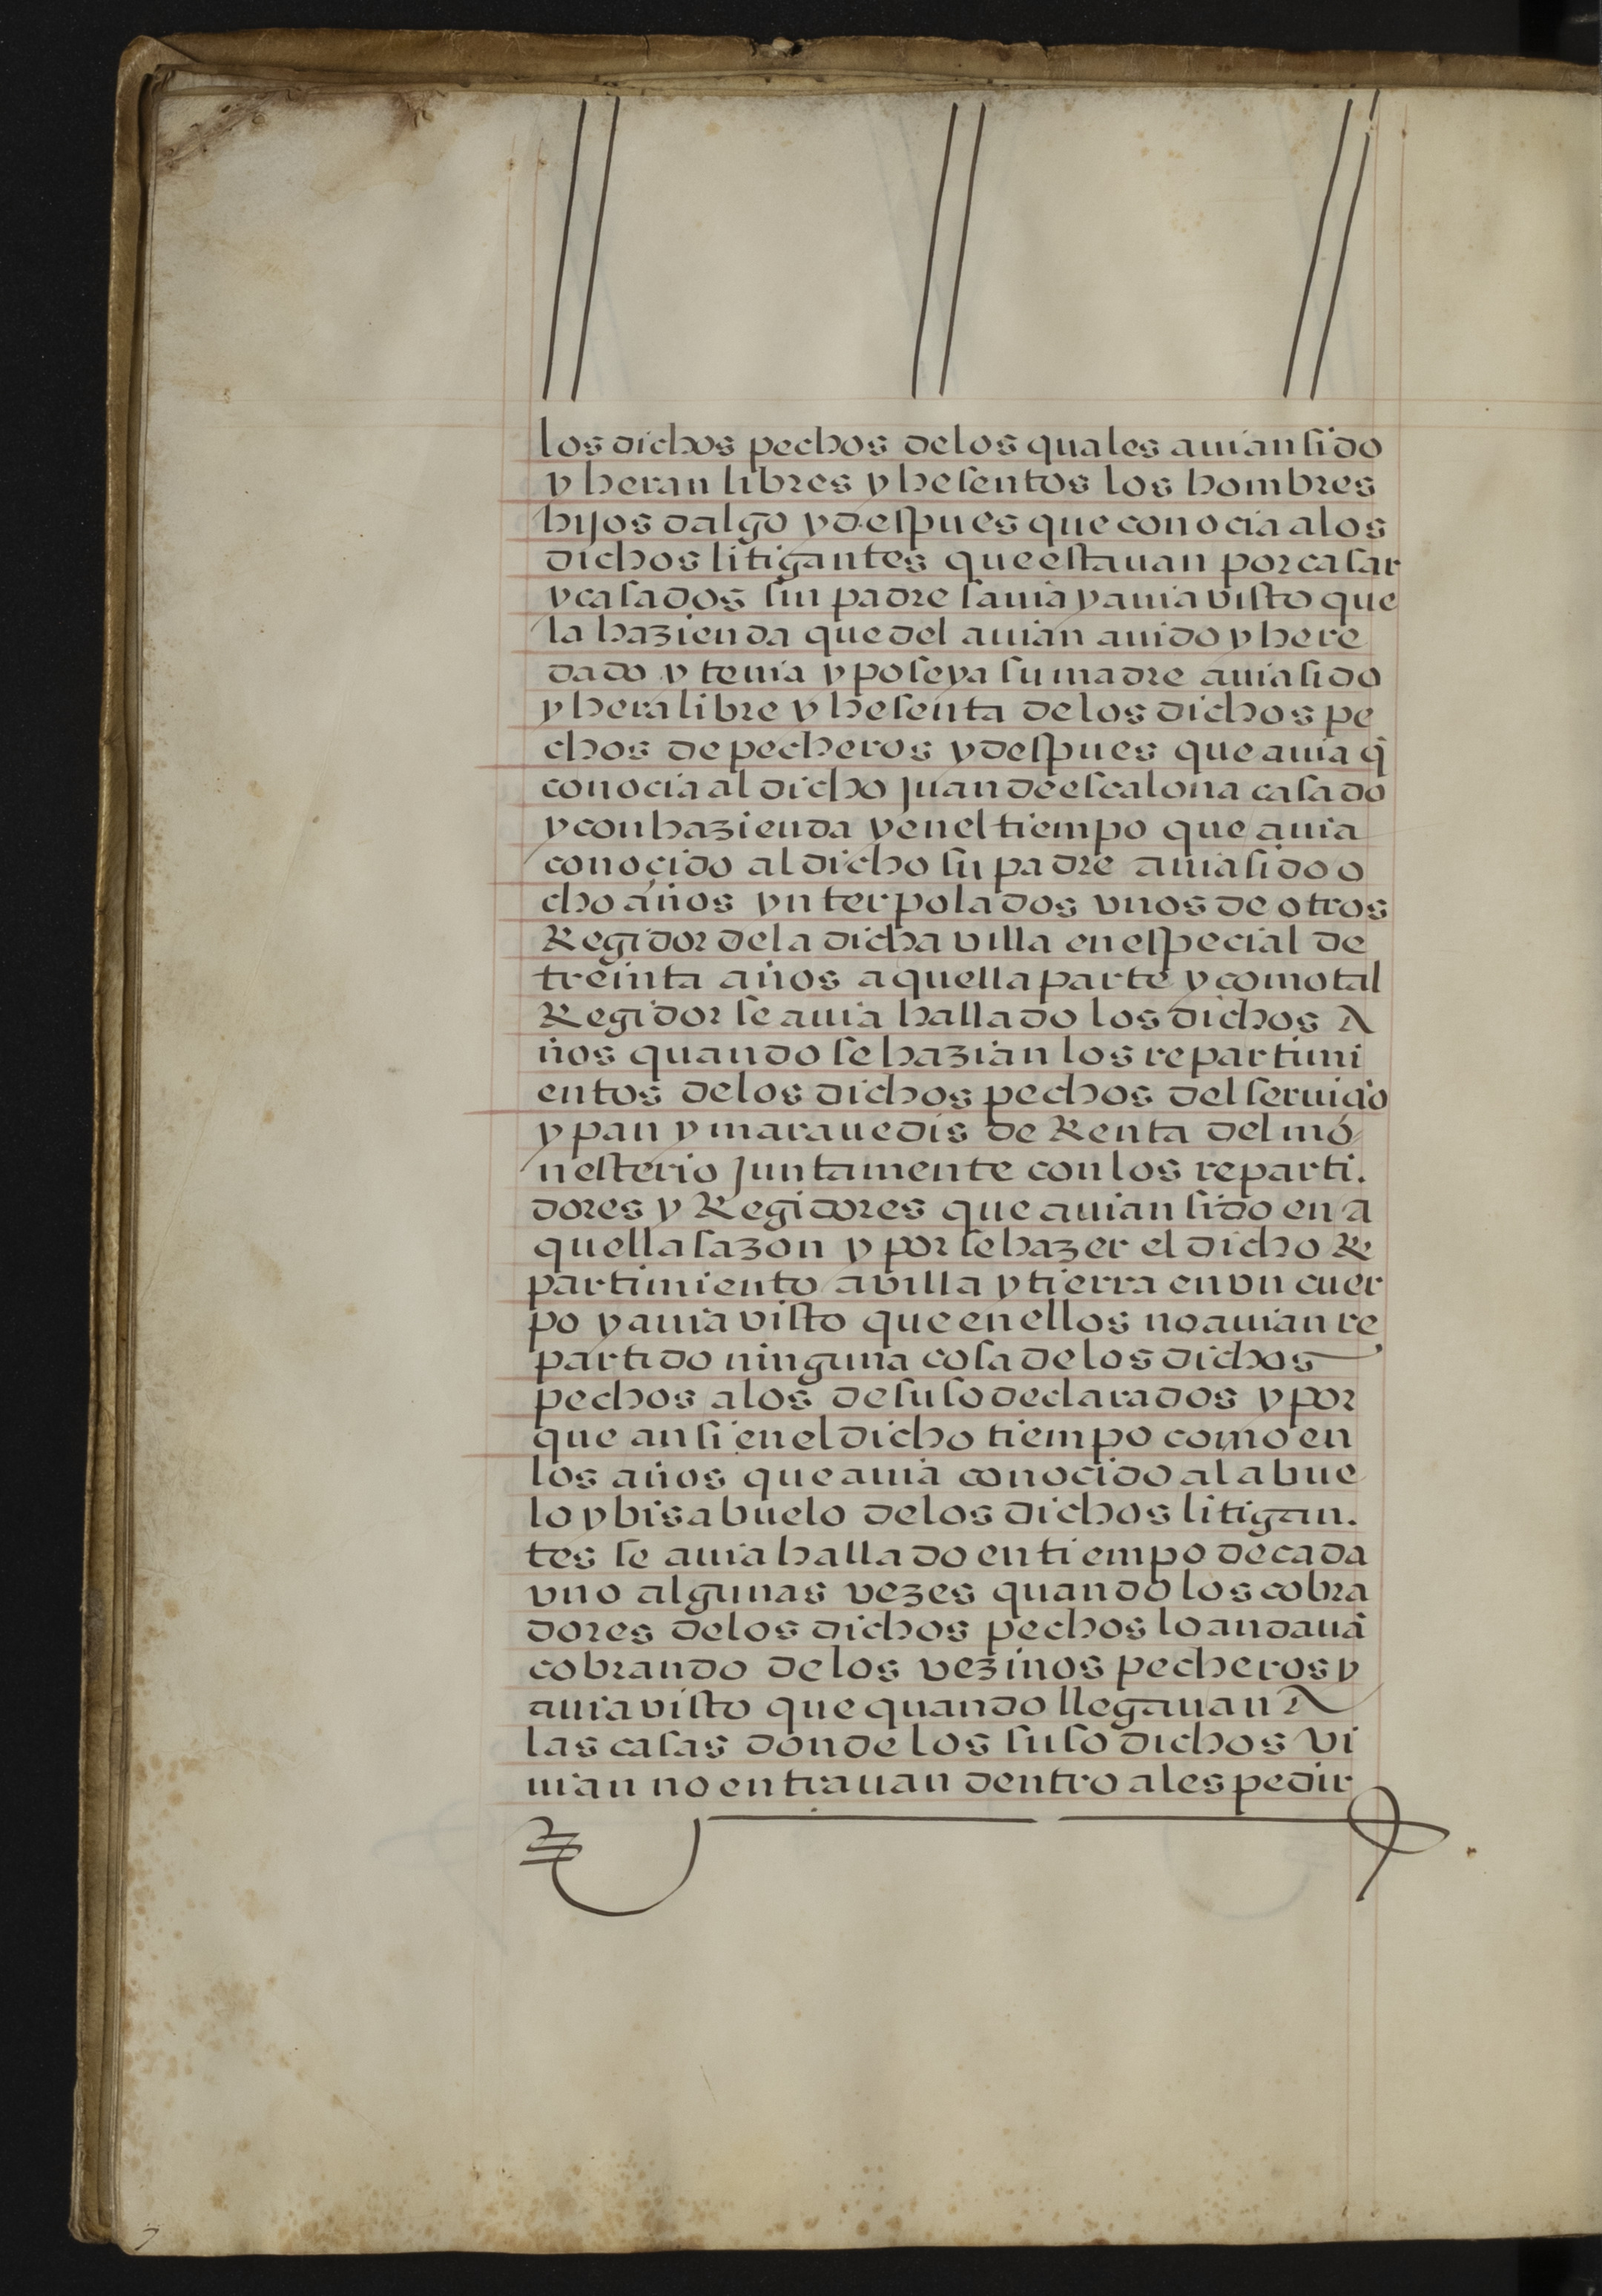 los dichos pechos delos quales auian sido
y heran libres y hesentos los hombres
hijos dalgo y despues que conocia alos
dichos litigantes que estauan por casar
y casados sin padre sauia y auia visto que
la hazienda que del auian auido y here
dado y tenia y poseya su madre auia sido
y hera libre y hesenta delos dichos pe
chos de pecheros y despues que auia q̄
conocia al dicho Juan de escalona casado
y con hazienda y en el tiempo que auia
conoçido al dicho su padre auia sido o
cho años ynterpolados vnos de otros
Regidor dela dicha villa en especial de
treinta años aquella parte y como tal
Regidor se auia hallado los dichos A
ños quando se hazian los repartimi
entos delos dichos pechos del seruiçio
y pan y marauedis de Renta del mo
nesterio Juntamente con los reparti.
dores y Regidores que auian sido en a
quella sazon y por se hazer el dicho Re
partimiento a villa y tierra en vn cuer
po y auia visto que en ellos no auian re
partido ninguna cosa delos dichos
pechos alos desuso declarados y por
que ansi en el dicho tiempo como en
los años que auia conocido al abue
lo y bisabuelo delos dichos litigan.
tes se auia hallado en tiempo de cada
vno algunas vezes quando los cobra
dores delos dichos pechos lo andauā
cobrando delos vezinos pecheros y
auia visto que quando llegauan A
las casas donde los susodichos vi
uian no entrauan dentro a les pedir